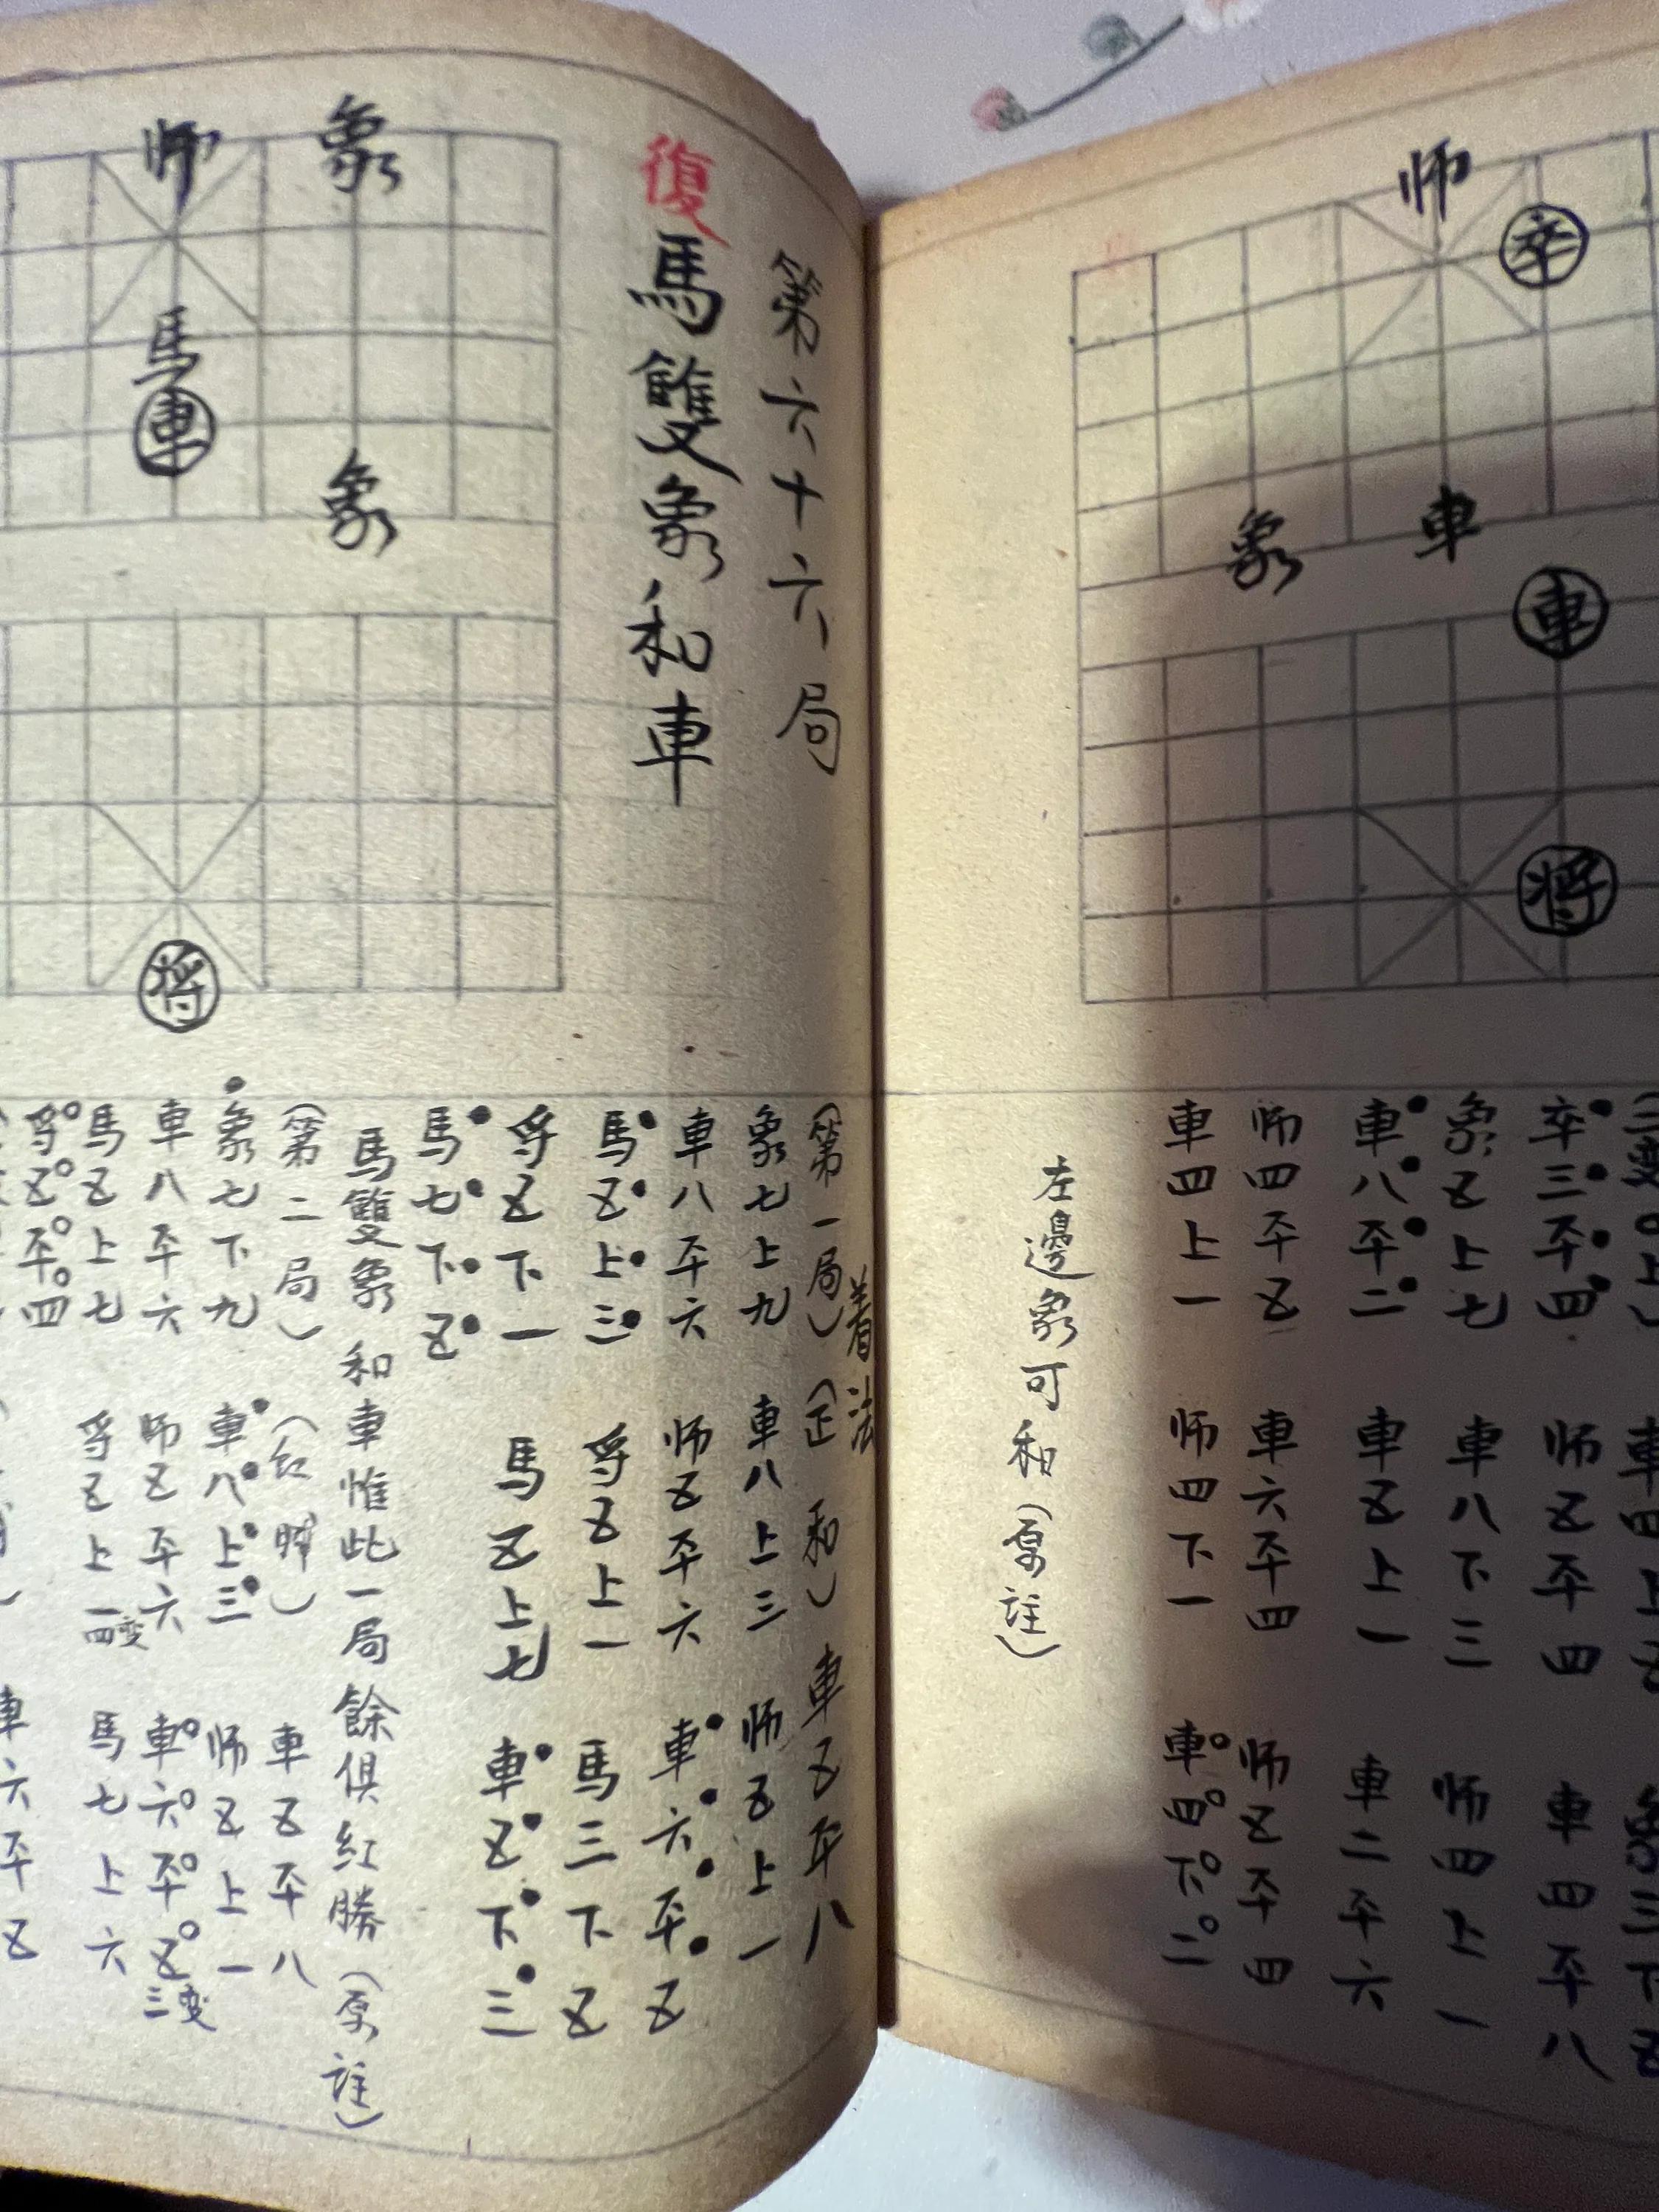 师
卒
象
車
車
将
卒三平四
师五平四
車四平八
象五上七
車八下三
师四上一
車八平二
車五上一
車二平六
师四平五
車六平四
师五平四
車四上一
师四下一
車四下二
左邊象可和（原註）
第六十六局
復馬雙象和車
师
象
馬
車
象
将
着法
（第一局）（正和）
車五平八
象七上九
車八上三
师五上一
車八平六
师五平六
車六平五
馬五上三
将五上一
馬三下五
将五下一
馬五上七
車五下三
馬七下五
馬雙象和車惟此一局餘俱紅勝（原註）
（第二局）（紅勝）
車五平八
象七下九
車八上三
师五上一
車八平六
师五平六
車六平五三变
馬五上七
将五上一四变
馬七上六
将五平四
車六平五